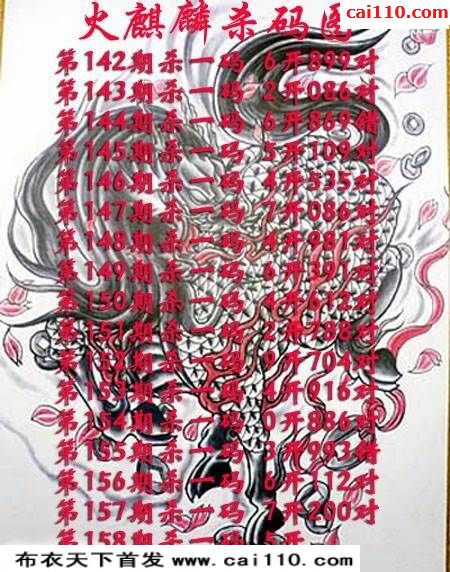 cai110.com
火麒麟杀码
第142期杀一码 6开899对
第143期杀一码 2开086对
第144期杀一码 6开869错
第145期杀一码 5开109对
第146期杀一码 4开535对
第147期杀一码 7开086对
第148期杀一码 4开981对
第149期杀一码 6开391对
第150期杀一码 4开612对
第151期杀一码 2开788对
第152期杀一码 9开704对
第153期杀一码 4开916对
第154期杀一码 0开886对
第155期杀一码 3开993错
第156期杀一码 6开112对
第157期杀一码 7开200对
第158期杀一码 5开
布衣天下首发 www.cai110.com